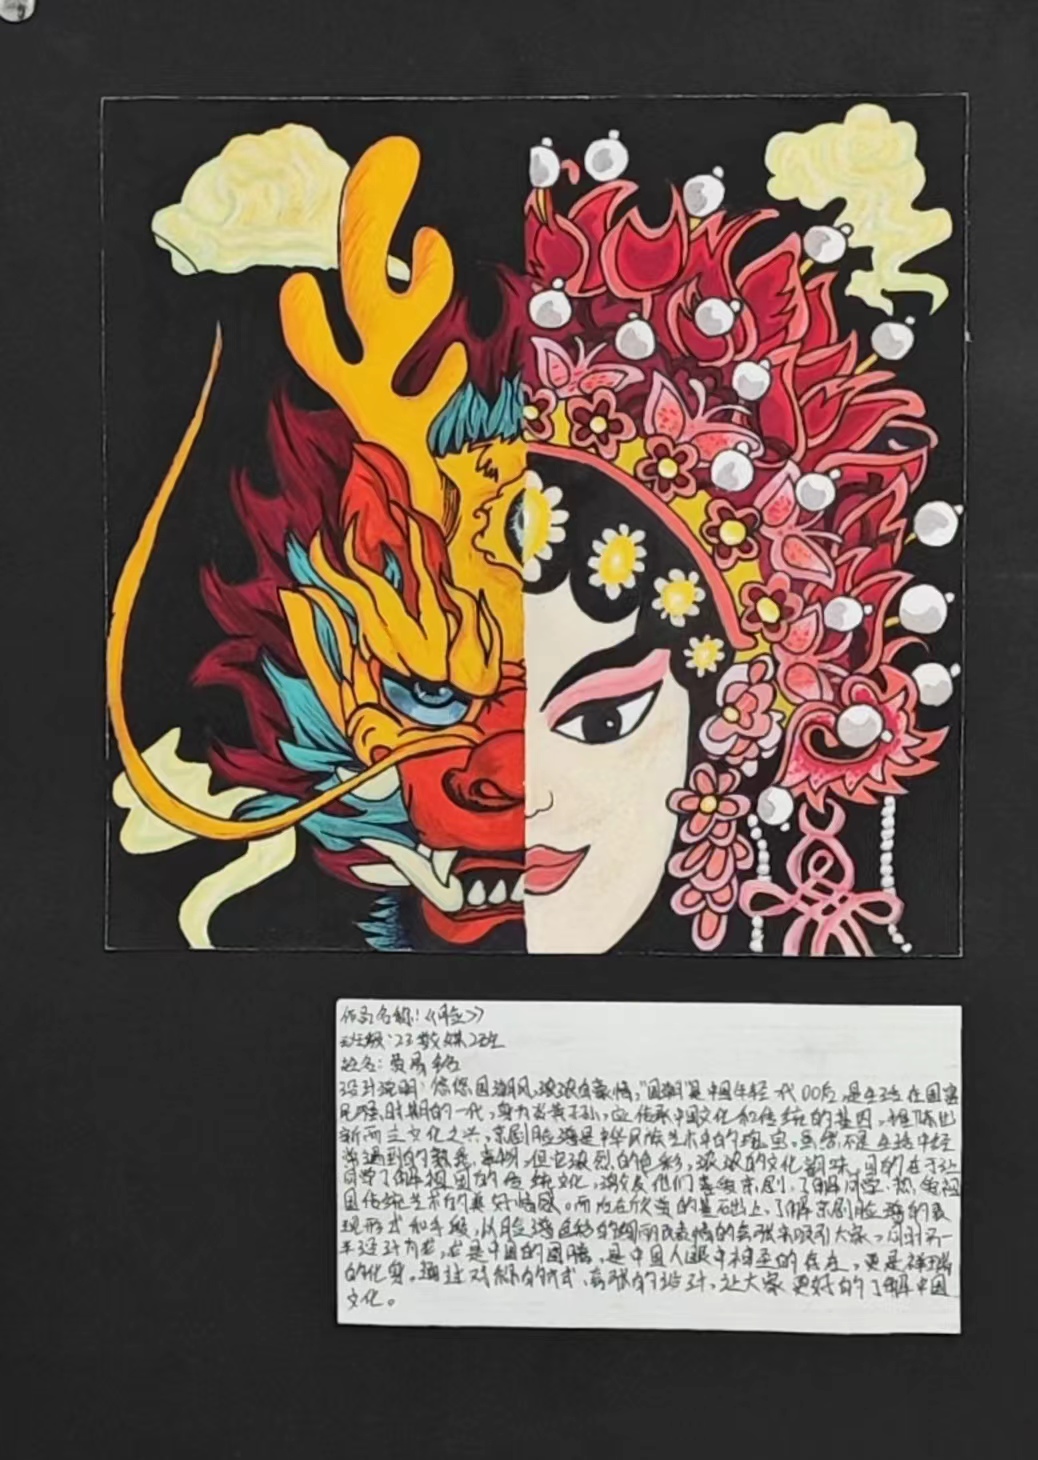 作品名称:《脸》
班级:23数媒2班
姓名:
设计说明:悠悠国潮风,浓浓自豪情,"国潮"是中国年轻一代00后,是生活在国富
民强时期的一代,身为炎黄子孙,应传承中国文化和传统的基因,推陈出
新而立文化之兴,京剧脸谱是中华民族艺术中的瑰宝,虽然不是生活中经
常遇到的熟悉事物,但它浓烈的色彩,浓浓的文化韵味,目的在于让
同学了解祖国的传统文化,激发他们喜爱京剧,了解同学热爱祖
国传统艺术的美好情感。而应在欣赏的基础上,了解京剧脸谱的表
现形式和手段,从脸谱色彩的绚丽及表情的夸张来吸引大家。同时另一
半设计为龙,龙是中国的图腾,是中国人眼中神圣的存在,更是祥瑞
的化身。通过对称的形式,夸张的设计,让大家更好的了解中国
文化。